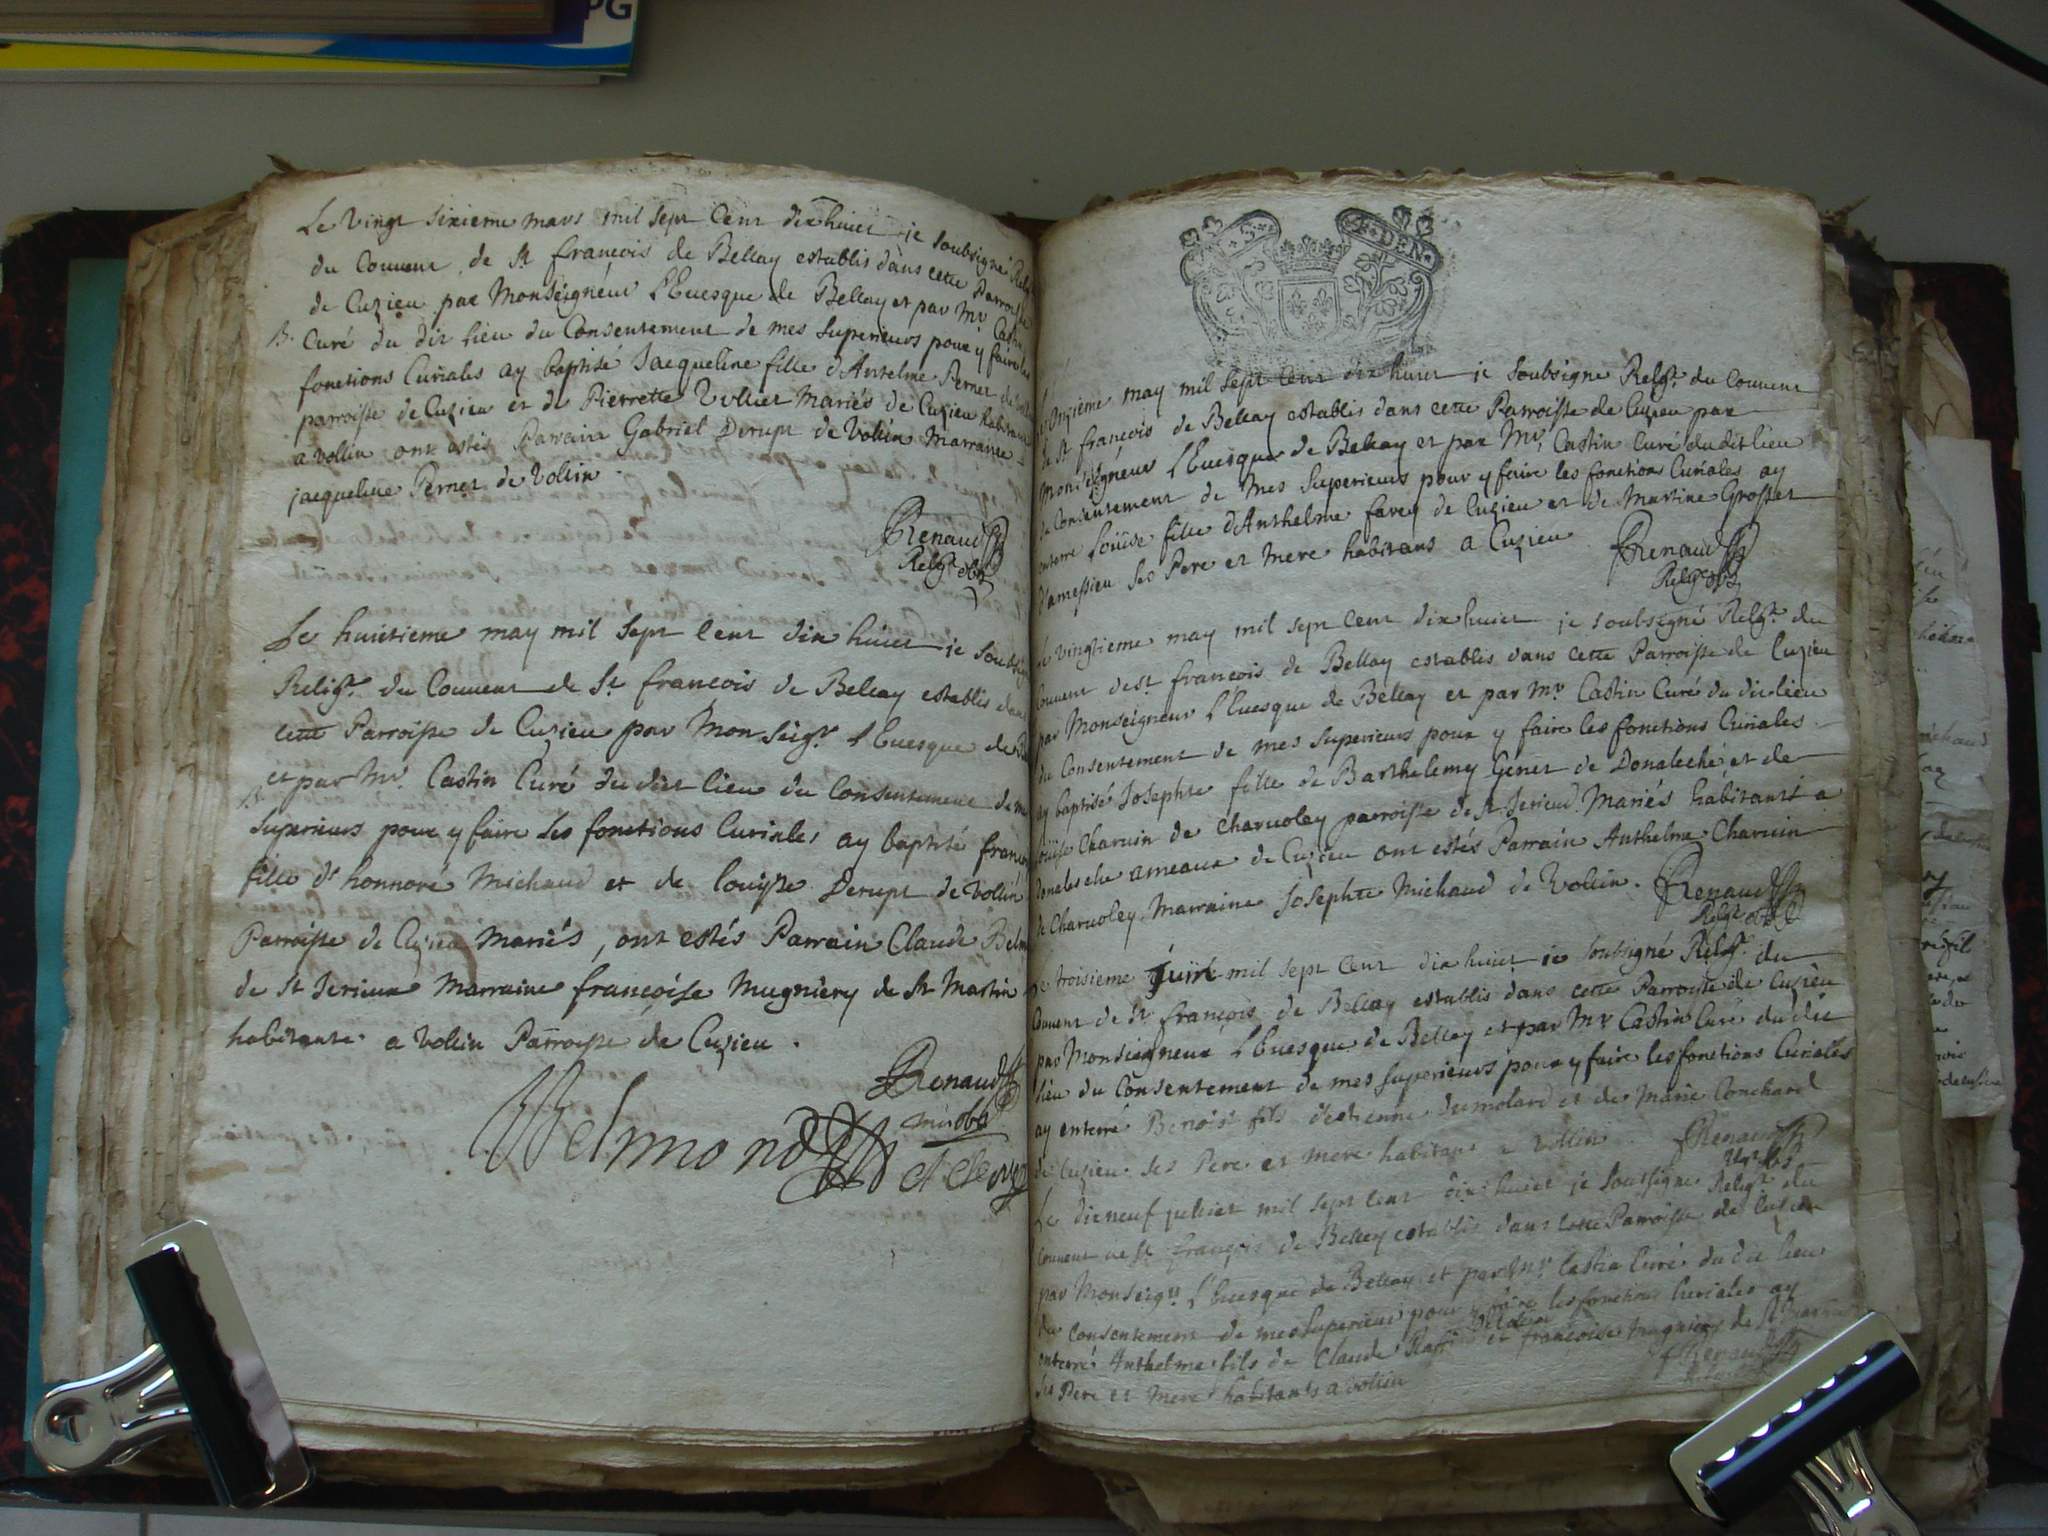 PG
Le vingt sixieme mars mil sept cent dix huict je soubsigné Relig
du Couuent de St françois de Bellay establis dans cette Parroisse
de Cuzieu par Monseigneur l'Euesque de Bellay et par Mr Castin
B. Curé du dit lieu du Consentement de mes superieurs pour y faire les
fonctions Curiales ay baptisé Jacqueline fille d'Antelme Pernet de
parroisse de Cuzieu et de Pierrette Vullier Mariés de Cuzieu habitans
a vollin ont estés Parrain Gabriel Derupt de Vollin Marraine
jacqueline Pernet de Vollin.
Renaud
Relig. obs
Le huictieme may mil sept cent dix huict je soubsig
Religx. du Couuent de St françois de Bellay establis dans
cette Parroisse de Cuzieu par Mon seigr. l'Euesque de B
B. et par Mr. Castin Curé du dict lieu du Consentement de me
superieurs pour y faire les fonctions Curiales ay baptisé franço
fille d'honnoré Michaud et de louyse Derupt de Vollin
Parroisse de Cuzieu Mariés, ont estés Parrain Claude Belm
de St Jerieux Marraine françoise Mugniery de St Martin
habitante a Vollin Parroisse de Cuzieu.
Renaud
min obs
Belmond
DEN
onzieme may mil sept cent dix huict je soubsigne Relgx. du Couuent
de St françois de Bellay establis dans cette Parroisse de Cuzieu par
Monseigneur l'Euesque de Bellay et par Mr. Castin Curé du dit lieu
du Consentement de Mes superieurs pour y faire les fonctions Curiales ay
enterre Louise fille d'Anthelme favey de Cuzieu et de Martine Grosset
d'ameyzieu ses Pere et Mere habitans a Cuzieu
Renaud
Relgx obs
Le vingtieme may mil sept cent dix huict je soubsigné Relgx. du
Couuent de St. françois de Bellay establis dans cette Parroisse de Cuzieu
par Monseigneur l'Euesque de Bellay et par Mr Castin Curé du dit lieu
du Consentement de mes superieurs pour y faire les fonctions Curiales
ay baptisé Josephte fille de Barthelemy Genet de Donaleche et de
Louise Charuin de Charuoley parroisse de St Jerieud Mariés habitants a
Donalesche ameaux de Cuzieu ont estés Parrain Anthelme Charuin
de Charuoley Marraine Josephte Michaud de Vollin.
Renaud
Relgx obs
Le troisieme Juin mil sept cent dix huict je soubsigné Relgx. du
Couuent de St françois de Bellay establis dans cette Parroisse de Cuzieu
par Monseigneur l'Euesque de Bellay et par Mr Castin Curé du dit
lieu du Consentement de mes superieurs pour y faire les fonctions Curiales
ay enterré Benoist fils d'estienne dumolard et de Marie Conchard
de Cuzieu ses Pere et mere habitans a Vollin
Renaud
Le dixneuf juliet mil sept cent dix huict je soubsigne Religx du
Couuent de St françois de Bellay establis dans cette Parroisse de Cuzieu
par Monseigr l'Euesque de Bellay et par Mr. Castin Curé du dit lieu
du Consentement de mes superieurs pour y faire les fonctions Curiales ay
enterré Anthelme fils de Claude et françoise Mugniery de St Martin
ses Pere et mere habitants a Vollin
Renaud